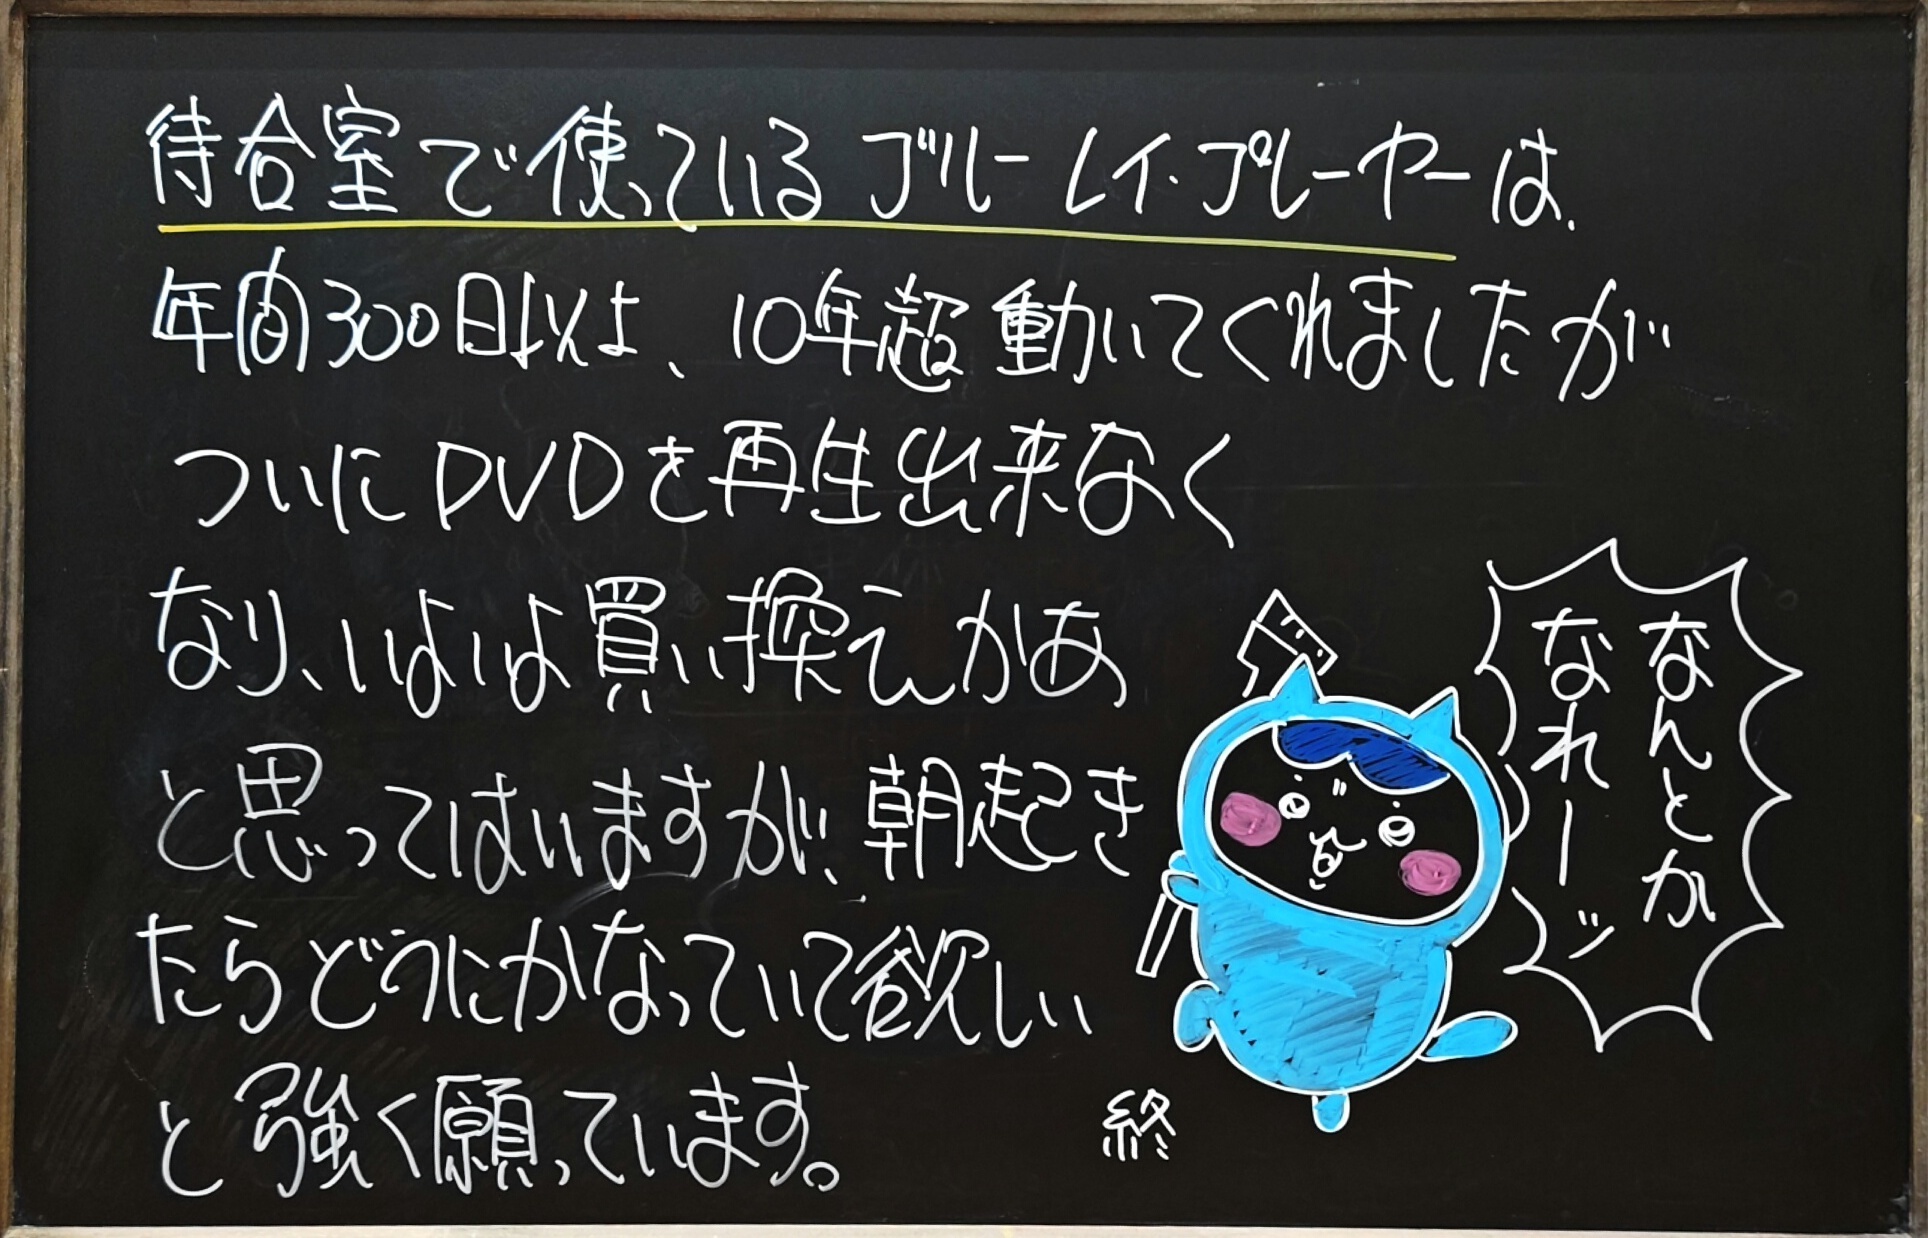 待合室で使っているブルーレイ・プレーヤーは、
年間300日以上、10年超動いてくれましたが
ついにDVDを再生出来なく
なり、いよいよ買い換えかあ
と思ってはいますが、朝起き
たらどうにかなっていて欲しい
と強く願っています。
終
なんとか
なれーッ